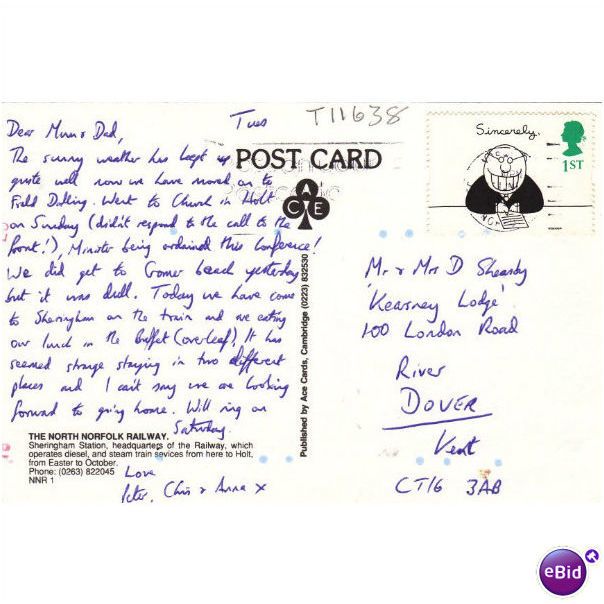 Tues
T11638
Dear Mum & Dad,
The sunny weather has kept up
quite well now we have moved on to
Field Dalling. Went to Church in Holt
on Sunday (didn't respond to the call to the
front!), Minister being ordained this Conference!
We did get to Cromer beach yesterday
but it was dull. Today we have come
to Sheringham on the train and are eating
our lunch in the buffet (overleaf). It has
seemed strange staying in two different
places and I can't say we are looking
forward to going home. Will ring on
Saturday.
Love
Peter, Chris & Anna x
THE NORTH NORFOLK RAILWAY.
Sheringham Station, headquarters of the Railway, which
operates diesel, and steam train sevices from here to Holt,
from Easter to October.
Phone: (0263) 822045
NNR 1
POST CARD
ACE
Published by Ace Cards, Cambridge (0223) 832530
Sincerely,
1ST
Mr & Mrs D Shearby
'Kearsney Lodge'
100 London Road
River
DOVER
Kent
CT16 3AB
eBid